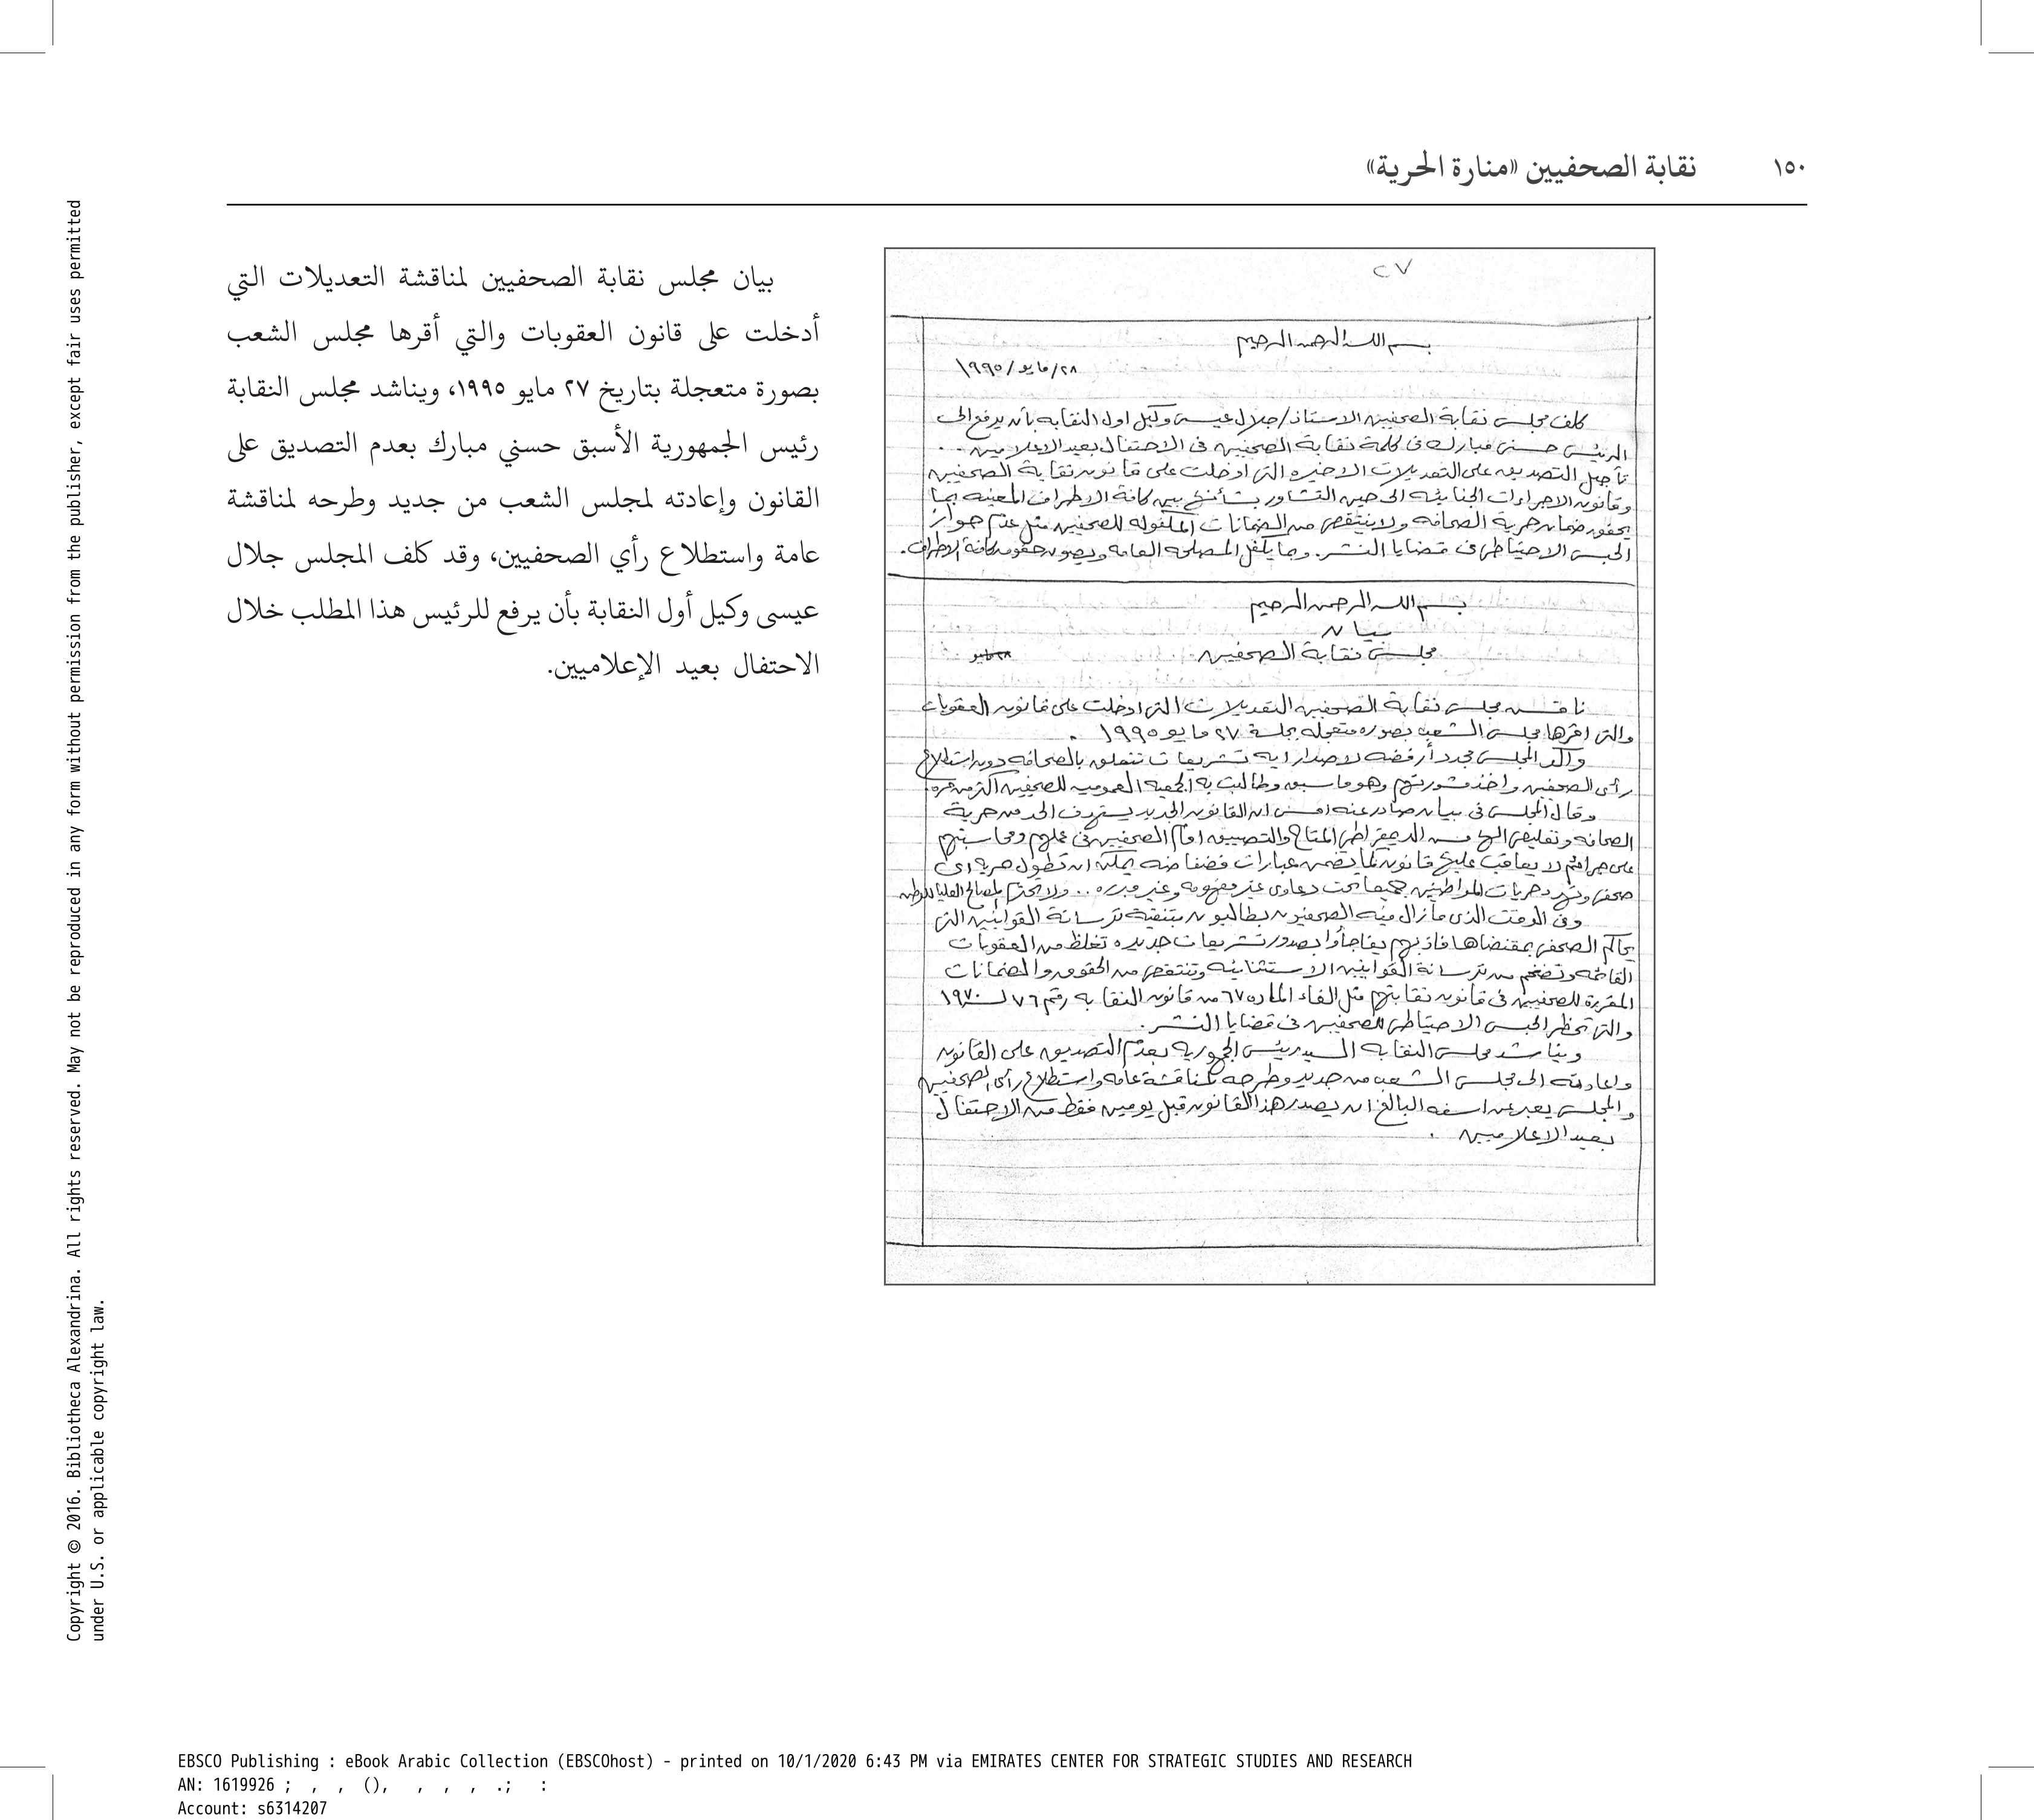 ١٥٠ نقابة الصحفيين «منارة الحرية»
٢٧
بسم الله الرحمن الرحيم
٢٨/مايو/١٩٩٥
كلف مجلس نقابة الصحفيين الاستاذ/جلال عيسى وكيل اول النقابه بأن يرفع الى
الرئيس حسنى مبارك فى كلمة نقابة الصحفيين فى الاحتفال بعيد الاعلاميين ..
تأجيل التصديق على التعديلات الاخيره التى ادخلت على قانون نقابة الصحفيين
وقانون الاجراءات الجنائيه الى حين التشاور بشأنها بين كافة الاطراف المعنيه بما
يحقق ضمان حرية الصحافه ولا ينتقص من الضمانات المكفوله للصحفيين مثل عدم جواز
الحبس الاحتياطى فى قضايا النشر. وبما يكفل المصلحه العامه ويصون حقوق كافة الاطراف.
بسم الله الرحمن الرحيم
بيان
مجلس نقابة الصحفيين
ناقش مجلس نقابة الصحفيين التعديلات التى ادخلت على قانون العقوبات
والتى اقرها مجلس الشعب بصوره متعجله بجلسة ٢٧ مايو ١٩٩٥ .
واكد المجلس مجدداً رفضه لاصدار ايه تشريعات تتعلق بالصحافه دون استطلاع
رأى الصحفيين واخذ مشورتهم وهو ما سبق وطالبت به الجمعيه العموميه للصحفيين اكثر من مره
وقال المجلس فى بيان صادر عنه امس ان القانون الجديد يستهدف الحد من حرية
الصحافه وتقليص الهامش الديمقراطى المتاح والتضييق امام الصحفيين فى عملهم ومحاسبتهم
على جرائم لا يعاقب عليها قانون لما يتضمن عبارات فضفاضه يمكن ان تطول حرية اى
صحفى وتهدد حريات المواطنين جميعا تحت دعاوى غير مفهومه وغير مبرره ... ولا تحترم المصالح العليا للوطن
وفى الوقت الذى مازال فيه الصحفيون يطالبون بتنقية ترسانة القوانين التى
يحاكم الصحفى بمقتضاها فاذ بهم يفاجأوا بصدور تشريعات جديده تغلظ من العقوبات
القائمه وتضخم من ترسانة القوانين الاستثنائيه وتنتقص من الحقوق والضمانات
المقررة للصحفيين فى قانون نقابتهم مثل الغاء الماده ٦٧ من قانون النقابه رقم ٧٦ لسـ ١٩٧٠
والتى تحظر الحبس الاحتياطى للصحفيين فى قضايا النشر.
ويناشد مجلس النقابه السيد رئيس الجمهوريه بعدم التصديق على القانون
واعادته الى مجلس الشعب من جديد وطرحه لمناقشة عامه واستطلاع رأى الصحفيين
والمجلس يعبر عن اسفه البالغ ان يصدر هذا القانون قبل يومين فقط من الاحتفال
بعيد الاعلاميين .
بيان مجلس نقابة الصحفيين لمناقشة التعديلات التي
أدخلت على قانون العقوبات والتي أقرها مجلس الشعب
بصورة متعجلة بتاريخ ٢٧ مايو ١٩٩٥، ويناشد مجلس النقابة
رئيس الجمهورية الأسبق حسني مبارك بعدم التصديق على
القانون وإعادته لمجلس الشعب من جديد وطرحه لمناقشة
عامة واستطلاع رأي الصحفيين، وقد كلف المجلس جلال
عيسى وكيل أول النقابة بأن يرفع للرئيس هذا المطلب خلال
الاحتفال بعيد الإعلاميين.
Copyright © 2016. Bibliotheca Alexandrina. All rights reserved. May not be reproduced in any form without permission from the publisher, except fair uses permitted
under U.S. or applicable copyright law.
EBSCO Publishing : eBook Arabic Collection (EBSCOhost) - printed on 10/1/2020 6:43 PM via EMIRATES CENTER FOR STRATEGIC STUDIES AND RESEARCH
AN: 1619926 ; , , (), , , , .; :
Account: s6314207